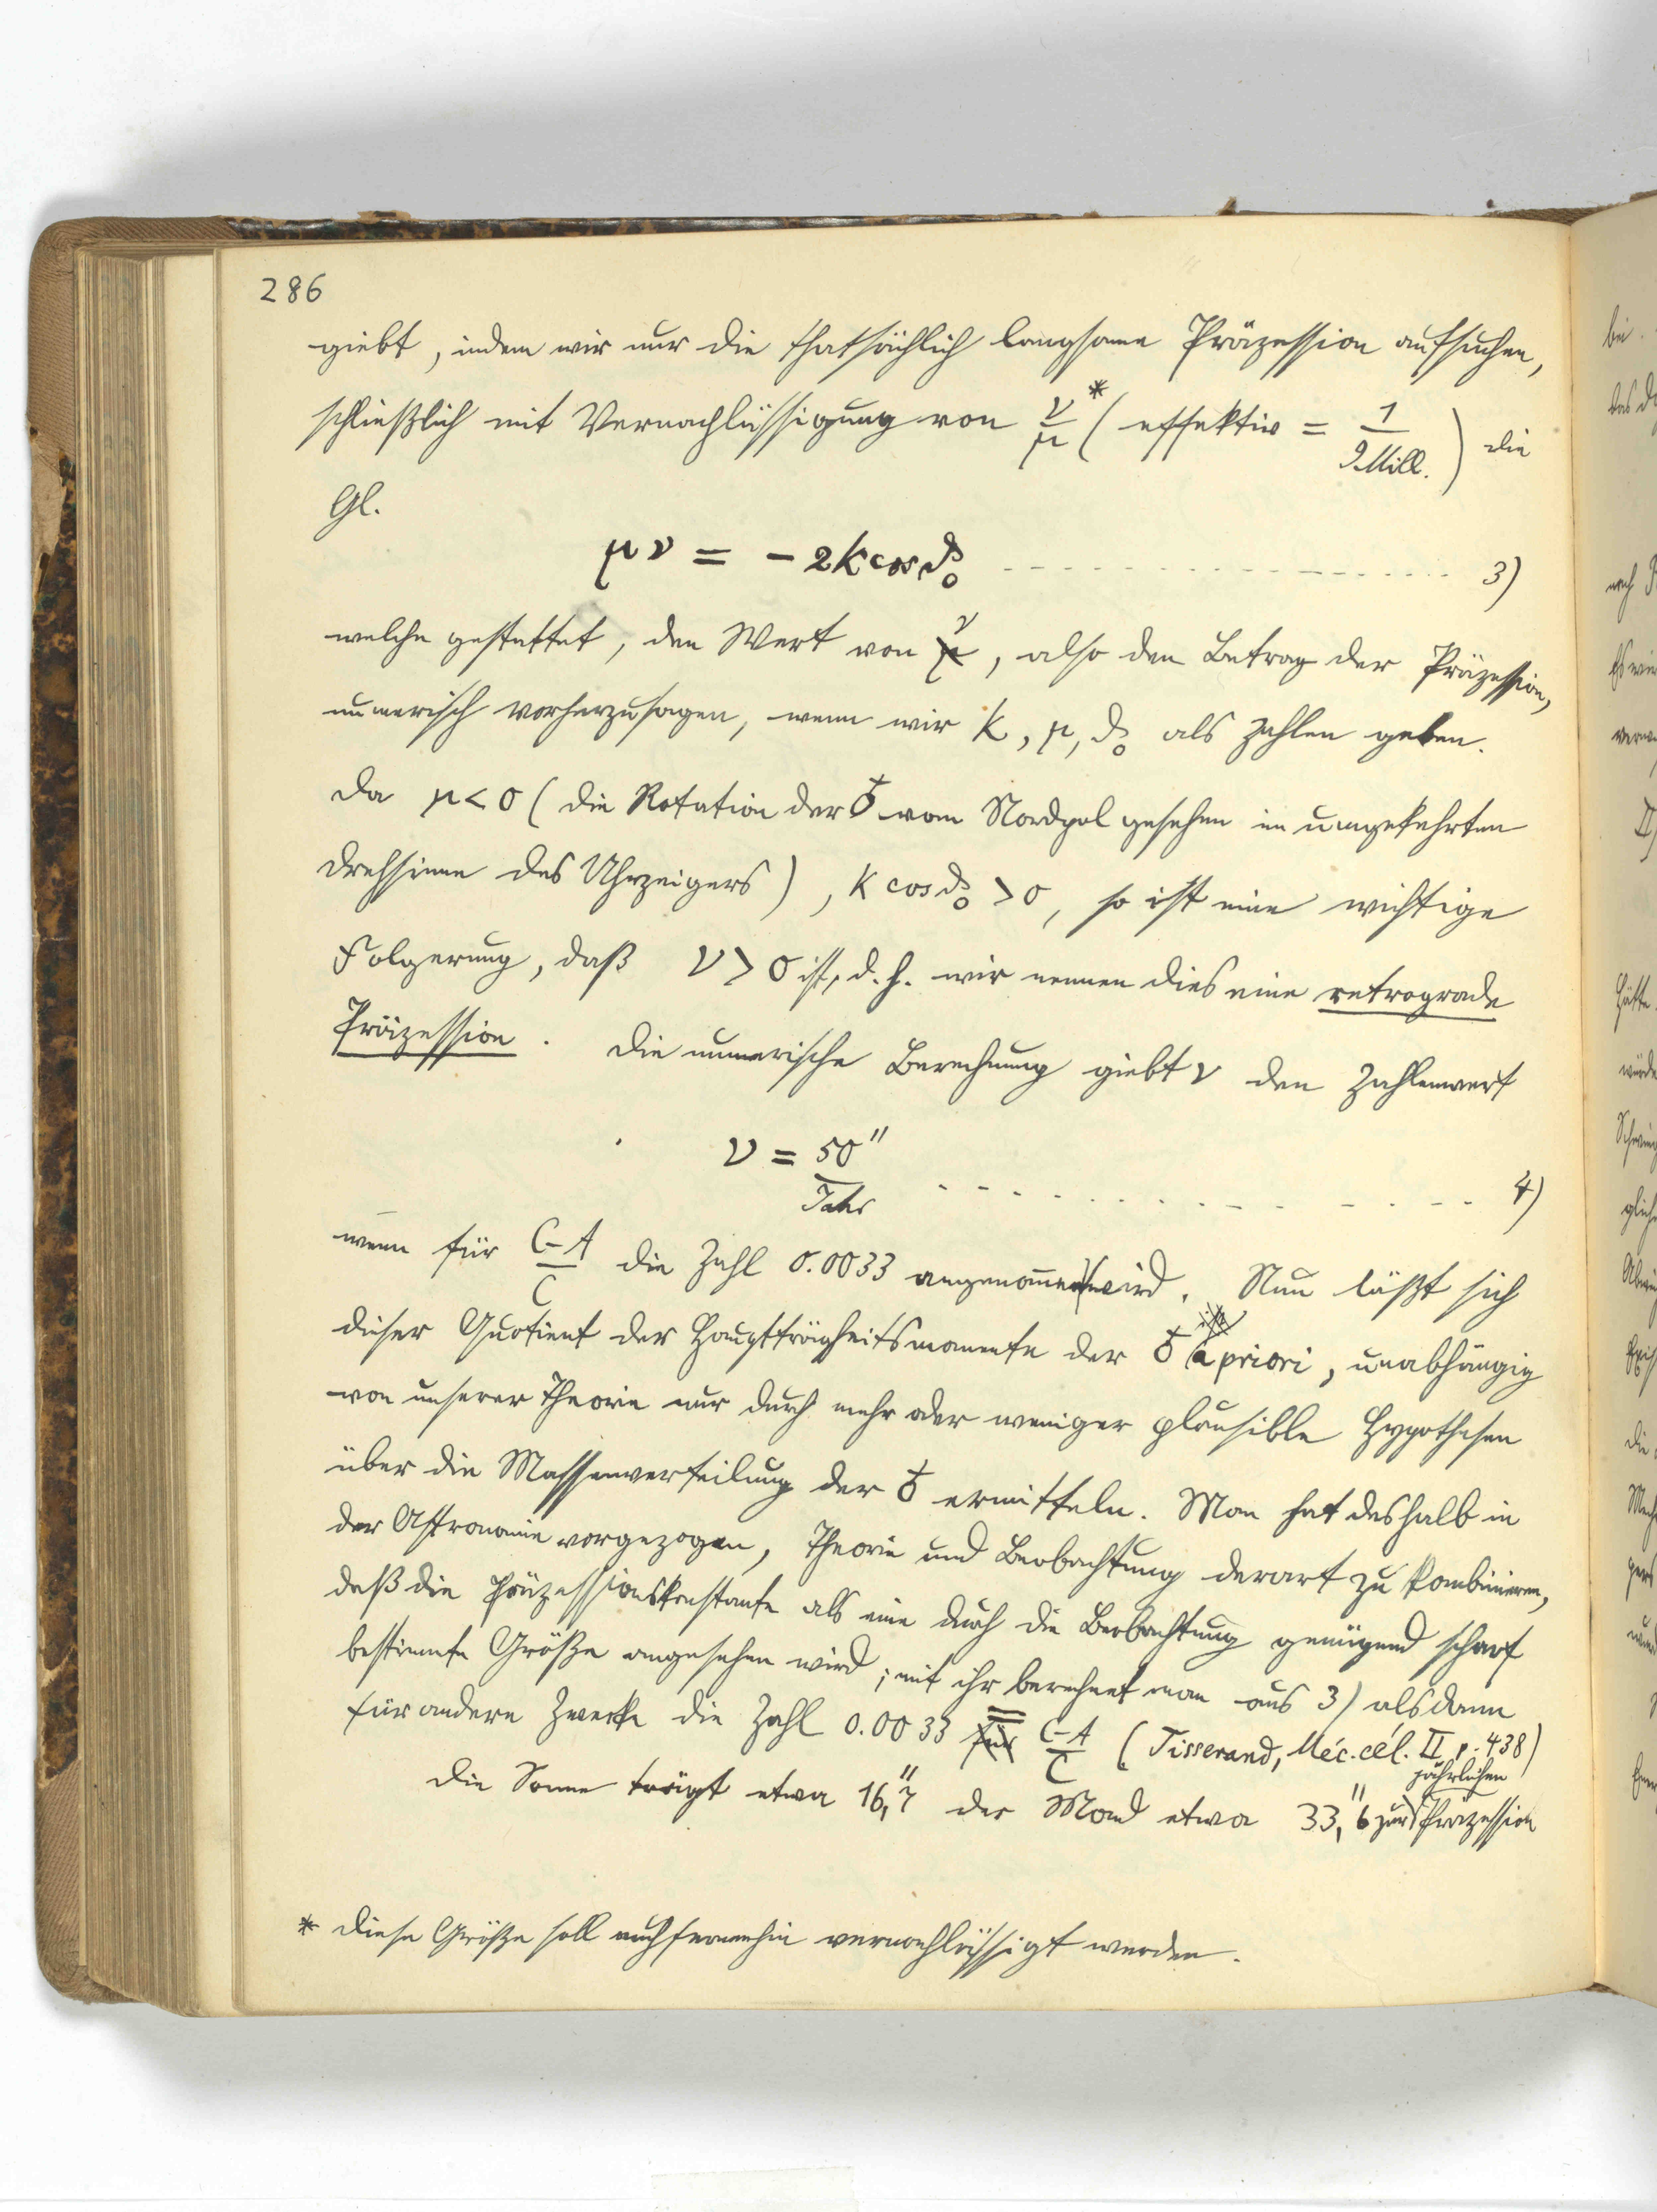 286
giebt, indem wir nur die thatsächlich langsame Präzession aufsuchen,
schließlich mit Vernachlässigung von ν/μ * ( effektiv = 1/9 Mill. ) die
Gl.
μν = - 2k cos ϑ₀ - - - - - - - - - - 3)
welche gestattet, den Wert von ν, also den Betrag der Präzession,
numerisch vorherzusagen, wenn wir k, μ, ϑ₀ als Zahlen geben.
Da μ < 0 ( die Rotation der ♁ vom Nordpol gesehen im umgekehrten
Drehsinne des Uhrzeigers ) , k cos ϑ₀ > 0, so ist eine wichtige
Folgerung, daß ν > 0 ist, d. h. wir nennen dies eine retrograde
Präzession . Die numerische Berechnung giebt ν den Zahlenwert
ν = 50"/Jahr - - - - - - - - - - 4)
wenn für C-A/C die Zahl 0.0033 angenom̄en wird. Nun läßt sich
dieser Quotient der Hauptträgheitsmomente der ♁ a priori, unabhängig
von unserer Theorie nur durch mehr oder weniger plausible Hypothesen
über die Massenverteilung der ♁ ermitteln. Man hat deshalb in
der Astronomie vorgezogen, Theorie und Beobachtung derart zu kombinieren,
daß die Präzessionskonstante als eine durch die Beobachtung genügend scharf
bestimmte Größe angesehen wird; mit ihr berechnet man aus 3) alsdann
für andere Zwecke die Zahl 0.0033 = C-A/C (Tisserand, Méc. cél. II p. 438)
Die Sonne trägt etwa 16,"7 der Mond etwa 33,"6 zur jährlichen Präzession
* Diese Größe soll auch fernerhin vernachlässigt werden.